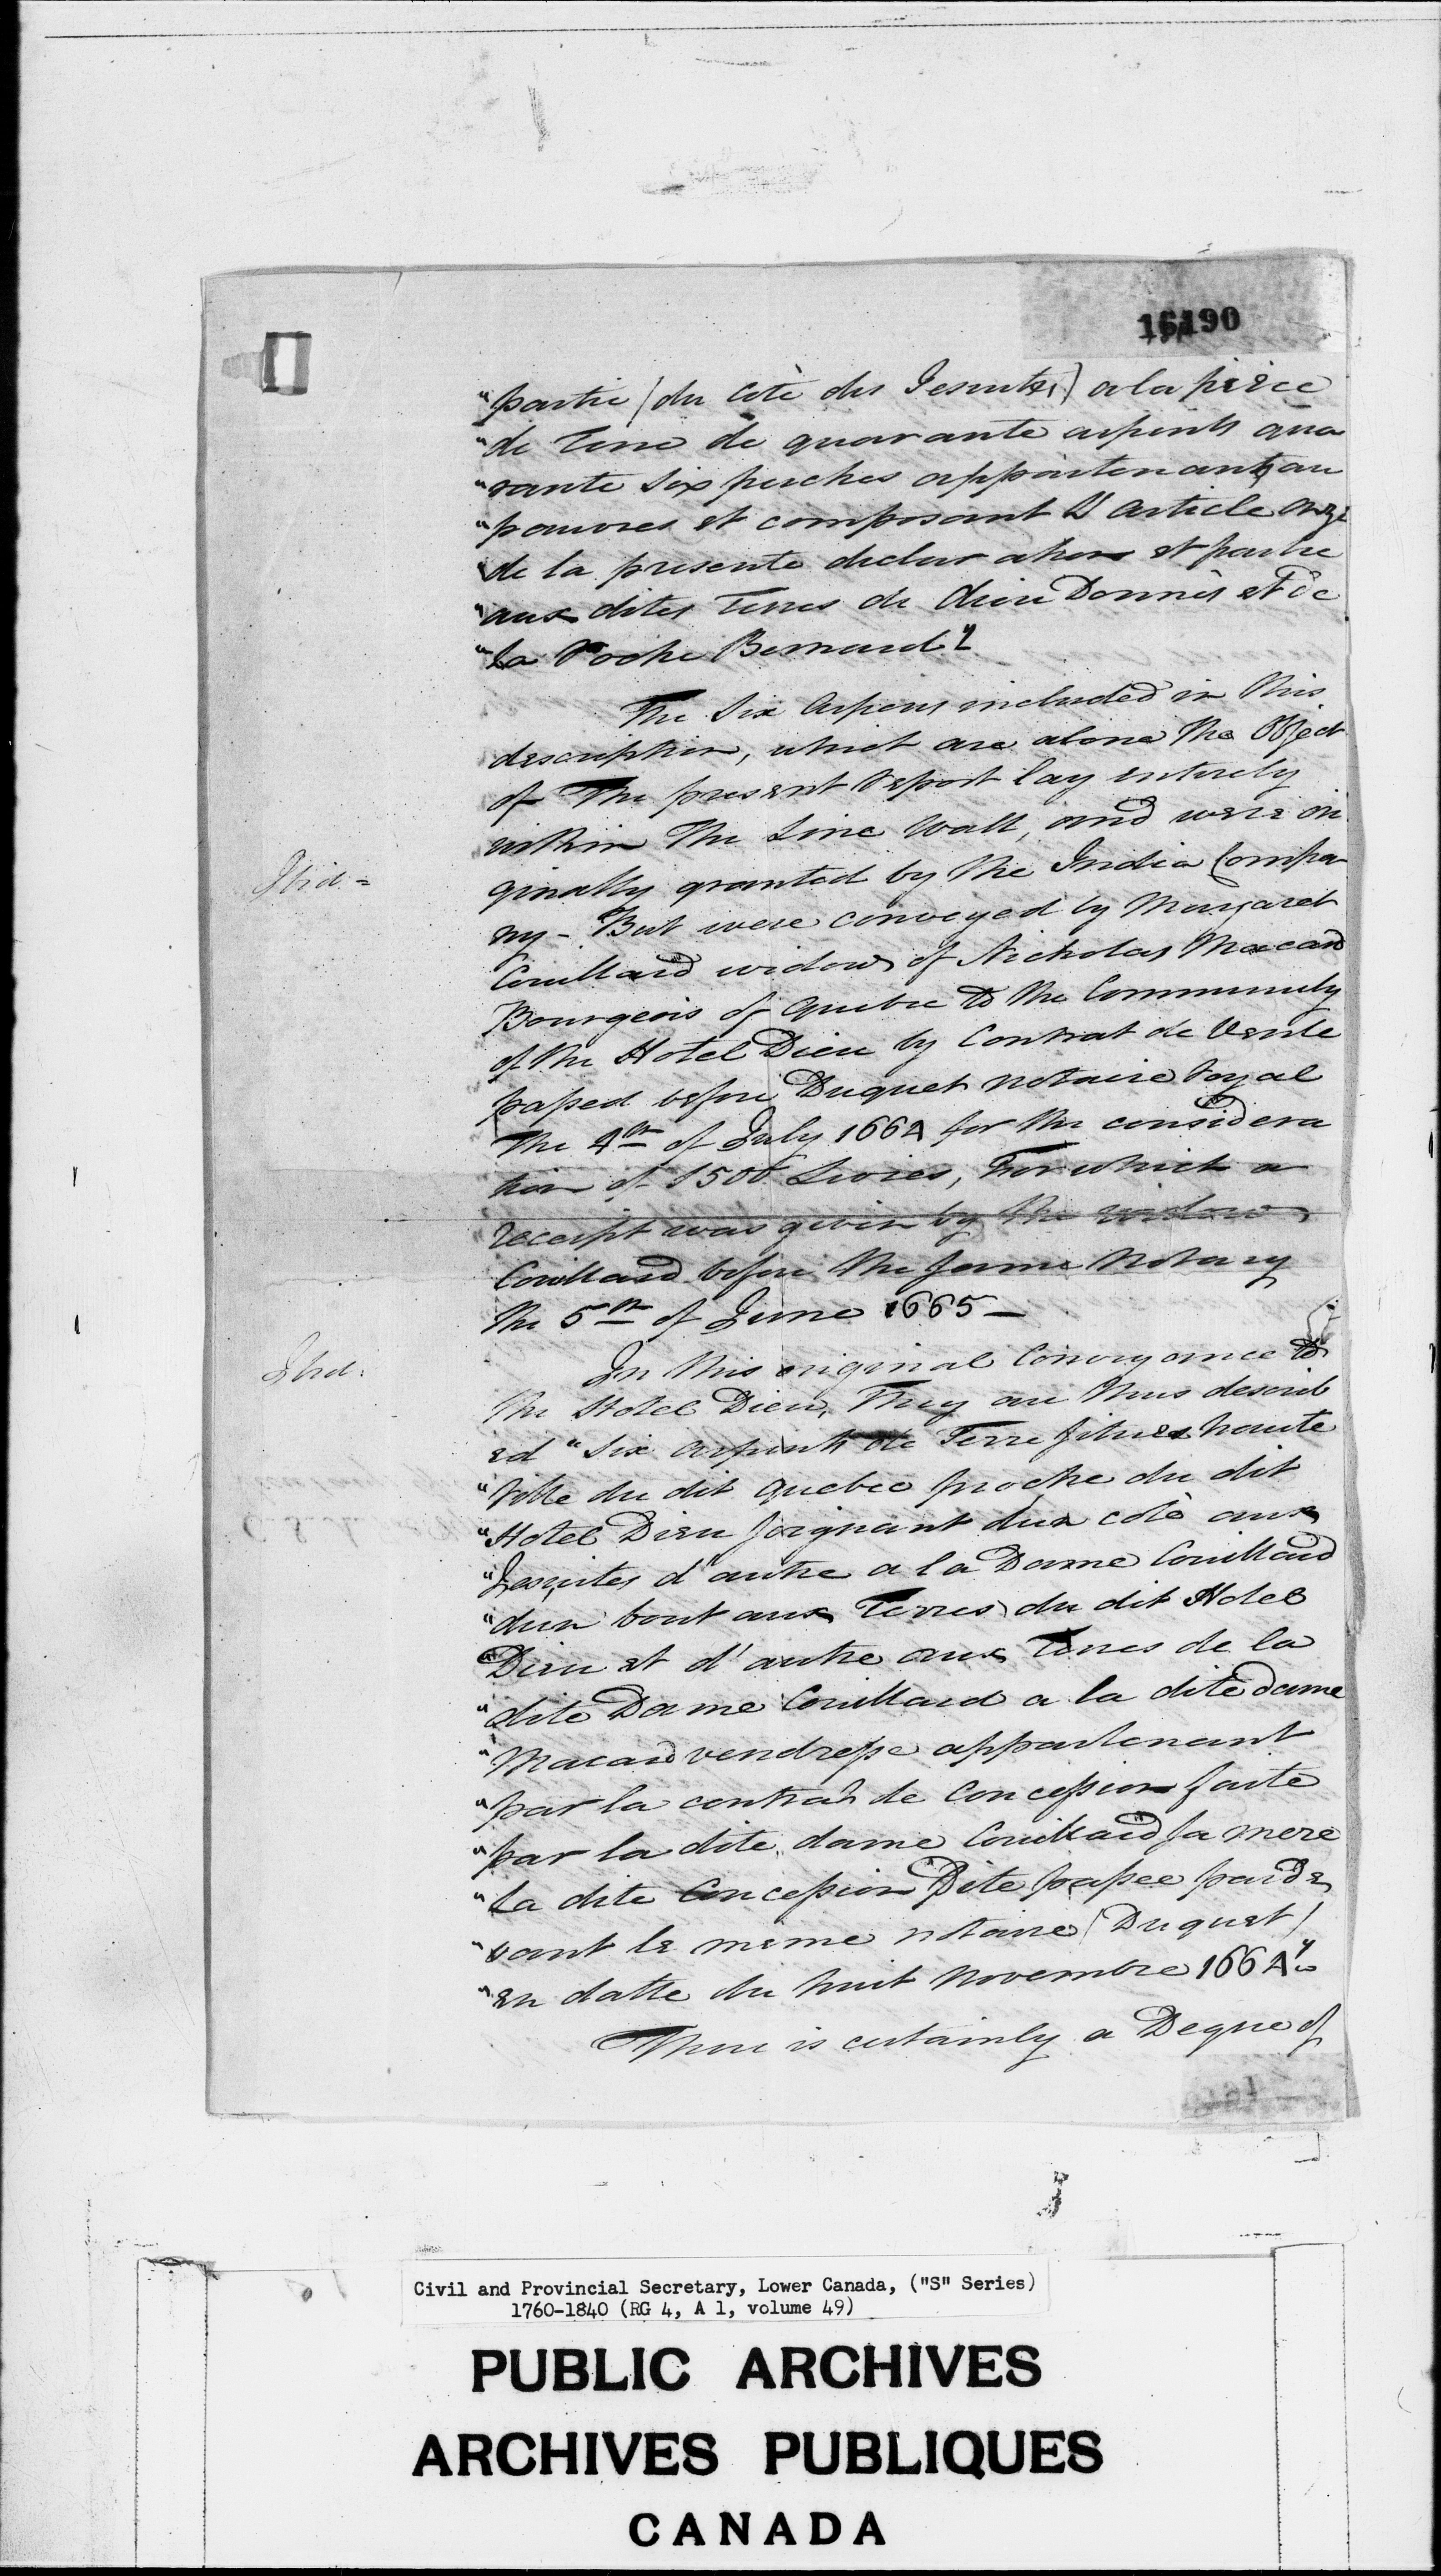 16190
"partie (du Cotè des Jesuites) a la pièce
"de Terre de quarante arpents qua
"rante six perches appartenant au
"pauvres et composant L'article onze
"de la presente declaration et partie
"aux dites Terres de Dieu Donnès et de
"la Roche Bernard"
The Six Arpens included in this
description, which are alone the Object
of The present Report lay entirely
within The Line Wall, and were ori
Ibid.=
ginally granted by the India Compa
ny - But were conveyed by Margaret
Couillard widow of Nicholas Macard
Bourgeois of Quebec to the Community
of the Hotel Dieu by Contrat de Vente
passed before Duquet notaire Royal
The 4th of July 1664 for the considera
tion of 1500 Livres, For which a
receipt was given by the widow
Couillard before the same Notary
the 5th of June 1665 —
Ibid.
In this original Conveyance to
the Hotel Dieu, They are thus describ
ed "Six arpents de Terre situes haute
"Ville du dit Quebec proche du dit
"Hotel Dieu joignant dun cotè aux
"Jesuites d'autre a la Dame Couillard
"dun bout aux Terres du dit Hotel
"Dieu et d'autre aux Terres de la
"dite Dame Couillard a la dite dame
"Macard vendresse appartenant
"par la contrat de Concession faite
"par la dite dame Couillard sa mere
"La dite Concession Dite passee parde
"vant le meme notaire (Duquet)
"en datte du huit Novembre 1664"
There is certainly a Degree of
Civil and Provincial Secretary, Lower Canada, ("S" Series)
1760-1840 (RG 4, A 1, volume 49)
PUBLIC ARCHIVES
ARCHIVES PUBLIQUES
CANADA